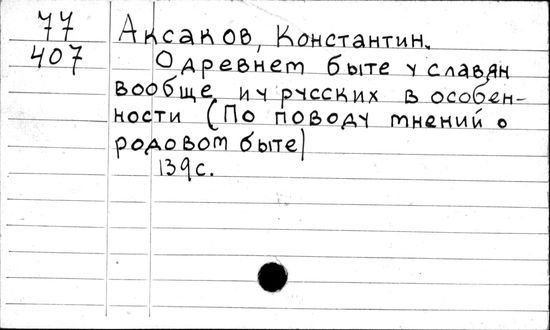 77
407
Аксаков, Константин.
О древнем быте у славян
вообще и у русских в особен-
ности (По поводу мнений о
родовом быте)
139с.